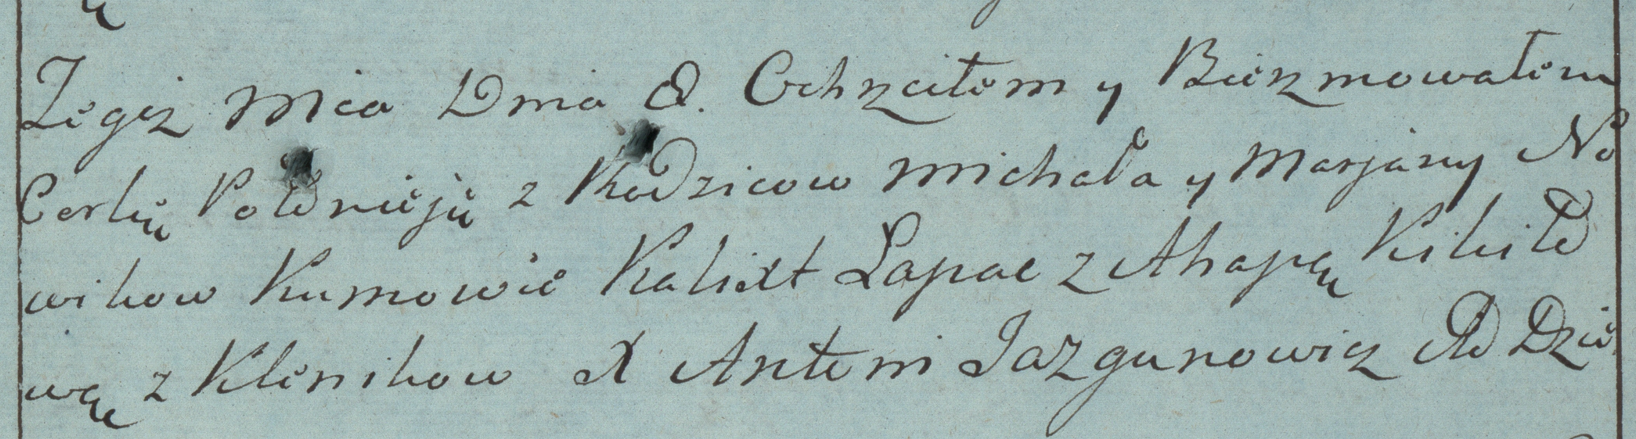 Tegiż Mca Dnia 8. Ochrzciłem y Bierzmowałem
Corkę z Rodzicow Michała y Marjany No
wikow Kumowie Kalixt Łapac z Ahapą Kikiło
wąc z Klenikow X Antoni Jazgunowicz AD Dzie